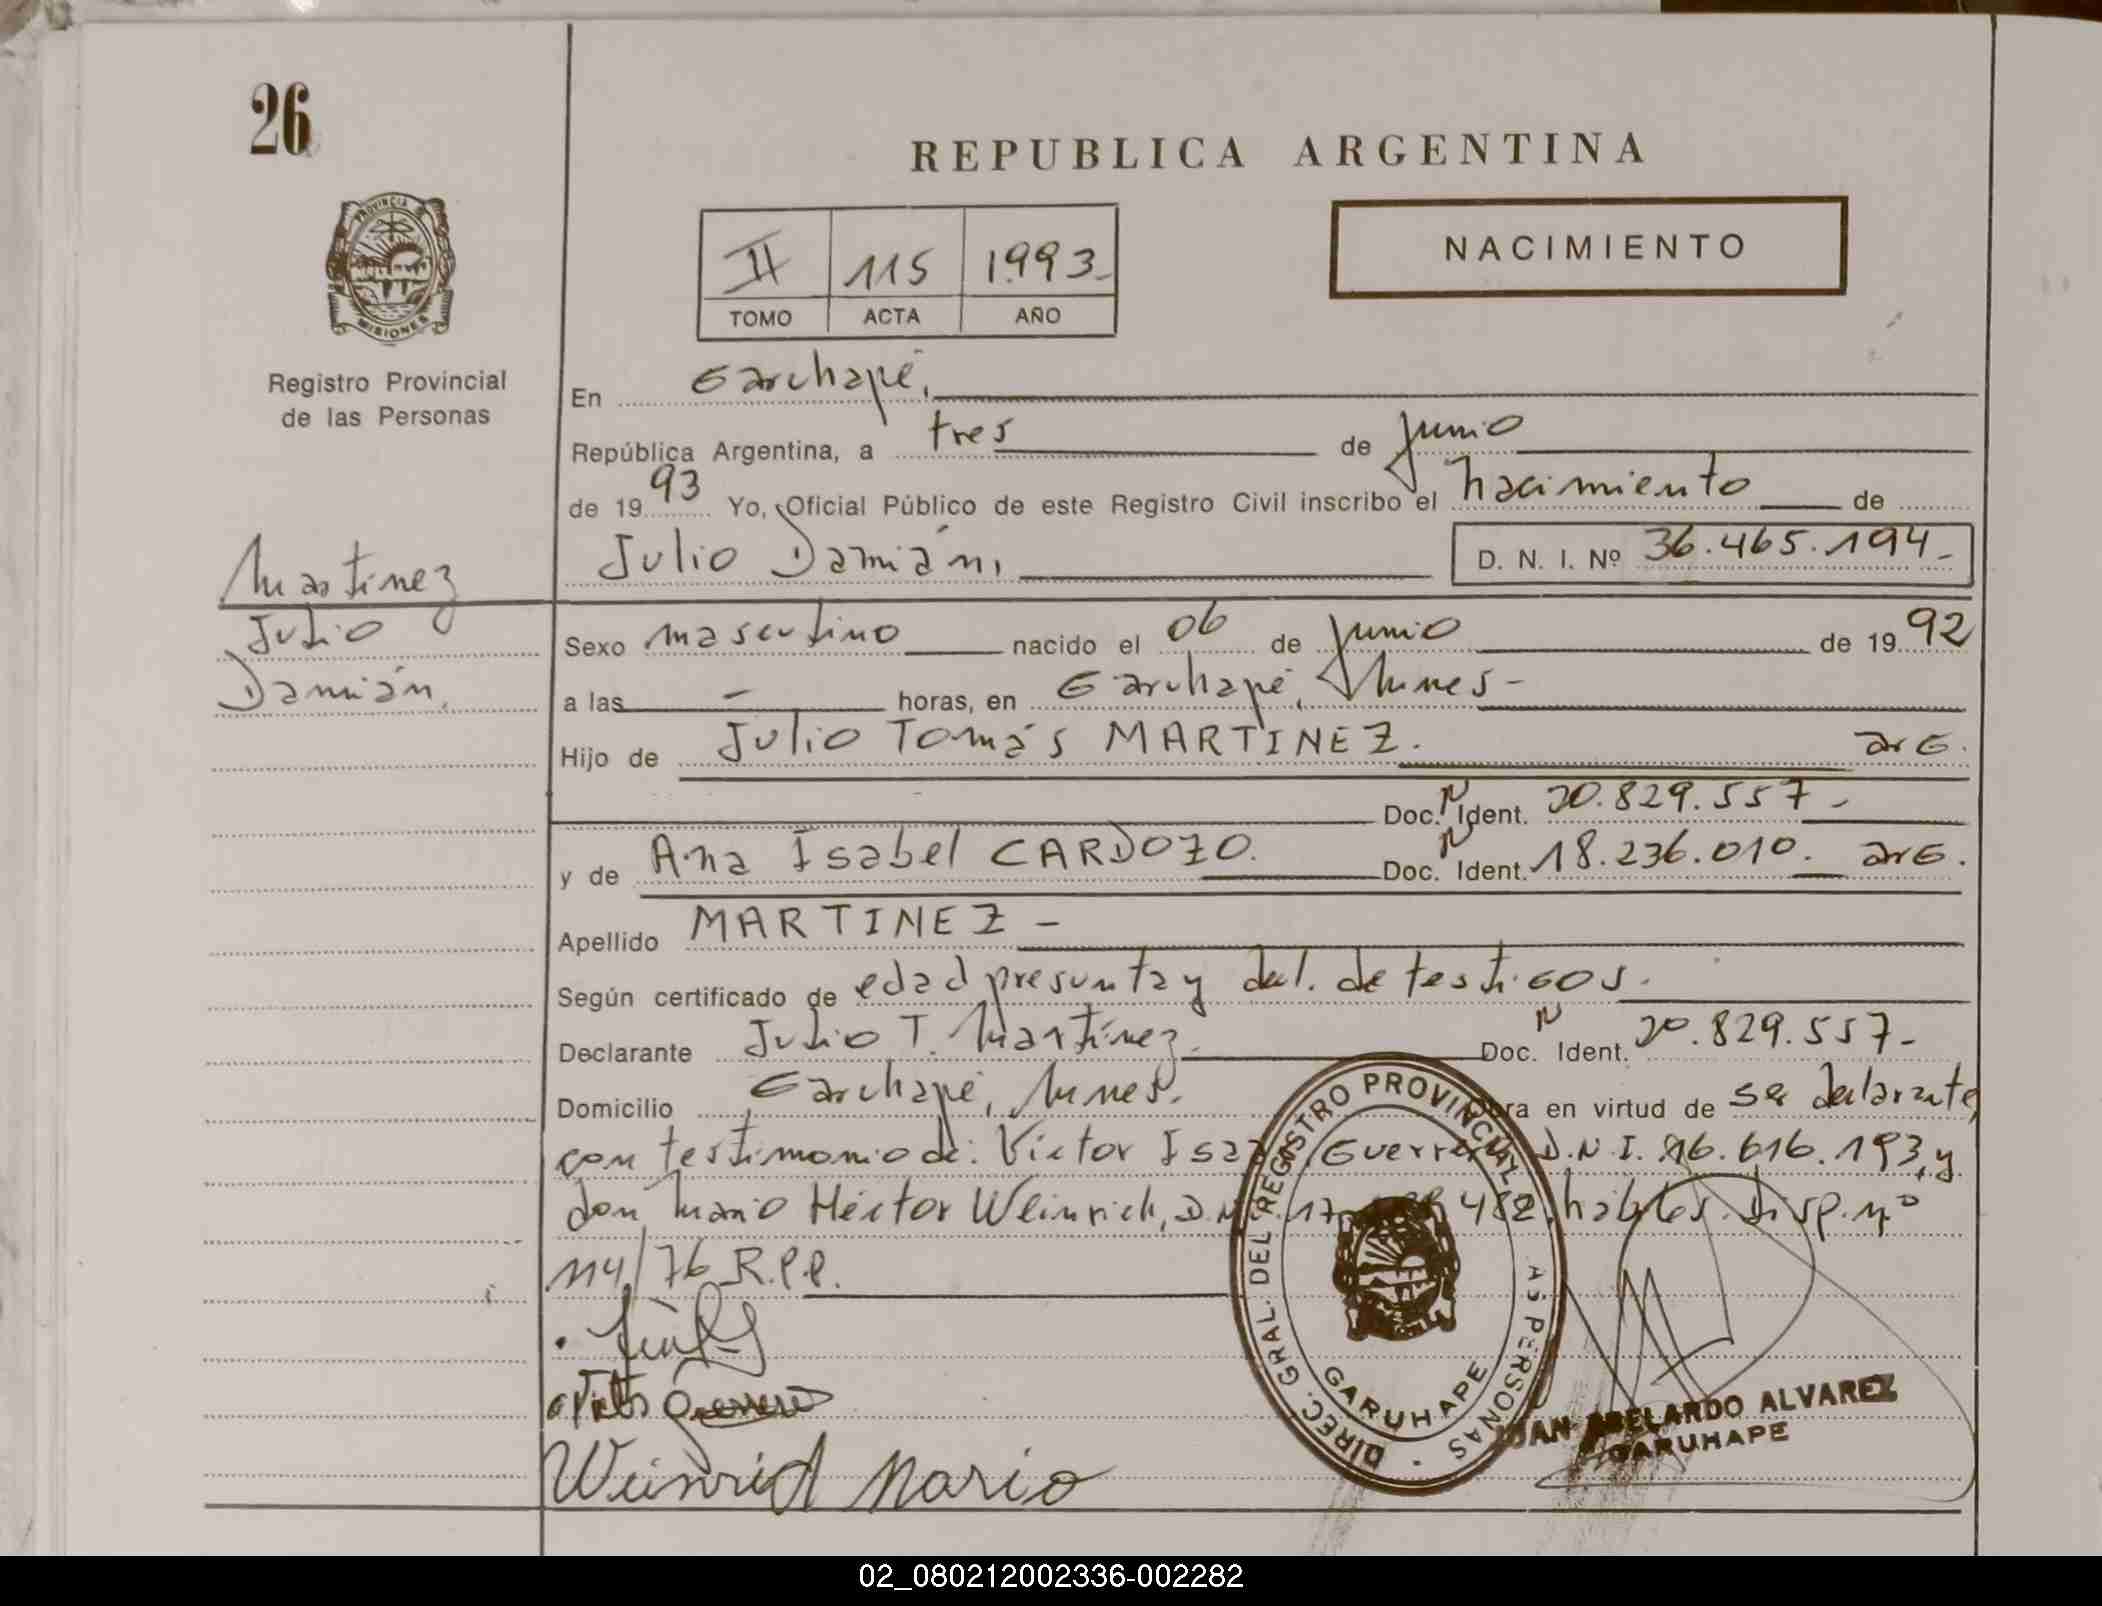 26
REPUBLICA ARGENTINA
NACIMIENTO
II 115 1993-
TOMO ACTA AÑO
PROVINCIA DE MISIONES
Registro Provincial
de las Personas
En Garuhapé,
República Argentina, a tres de Junio
de 1993 Yo, Oficial Público de este Registro Civil inscribo el nacimiento de
Julio Damián, D. N. I. Nº 36.465.194-
Martinez
Julio
Damián,
Sexo masculino nacido el 06 de Junio de 1992
a las - horas, en Garuhapé, Mnes-
Hijo de Julio Tomás MARTINEZ. arg.
Doc. N Ident. 20.829.557-
y de Ana Isabel CARDOZO. Doc. N Ident. 18.236.010. arg.
Apellido MARTINEZ -
Según certificado de edad presunta y decl. de testigos.
Declarante Julio T. Martínez. Doc. N Ident. 20.829.557-
Domicilio Garuhapé, Mnes. Obra en virtud de ser declarante,
con testimonio de: Víctor D.N.I. 16.616.193, y
don Mario Héctor Weinrich, D.N.I. 17. 482, hábiles. Disp. nº
114/76 R.P.P.
Weinrich Mario
DIREC. GRAL. DEL REGISTRO PROVINCIAL DE LAS PERSONAS
GARUHAPE
JUAN ABELARDO ALVAREZ
GARUHAPE
02_080212002336-002282